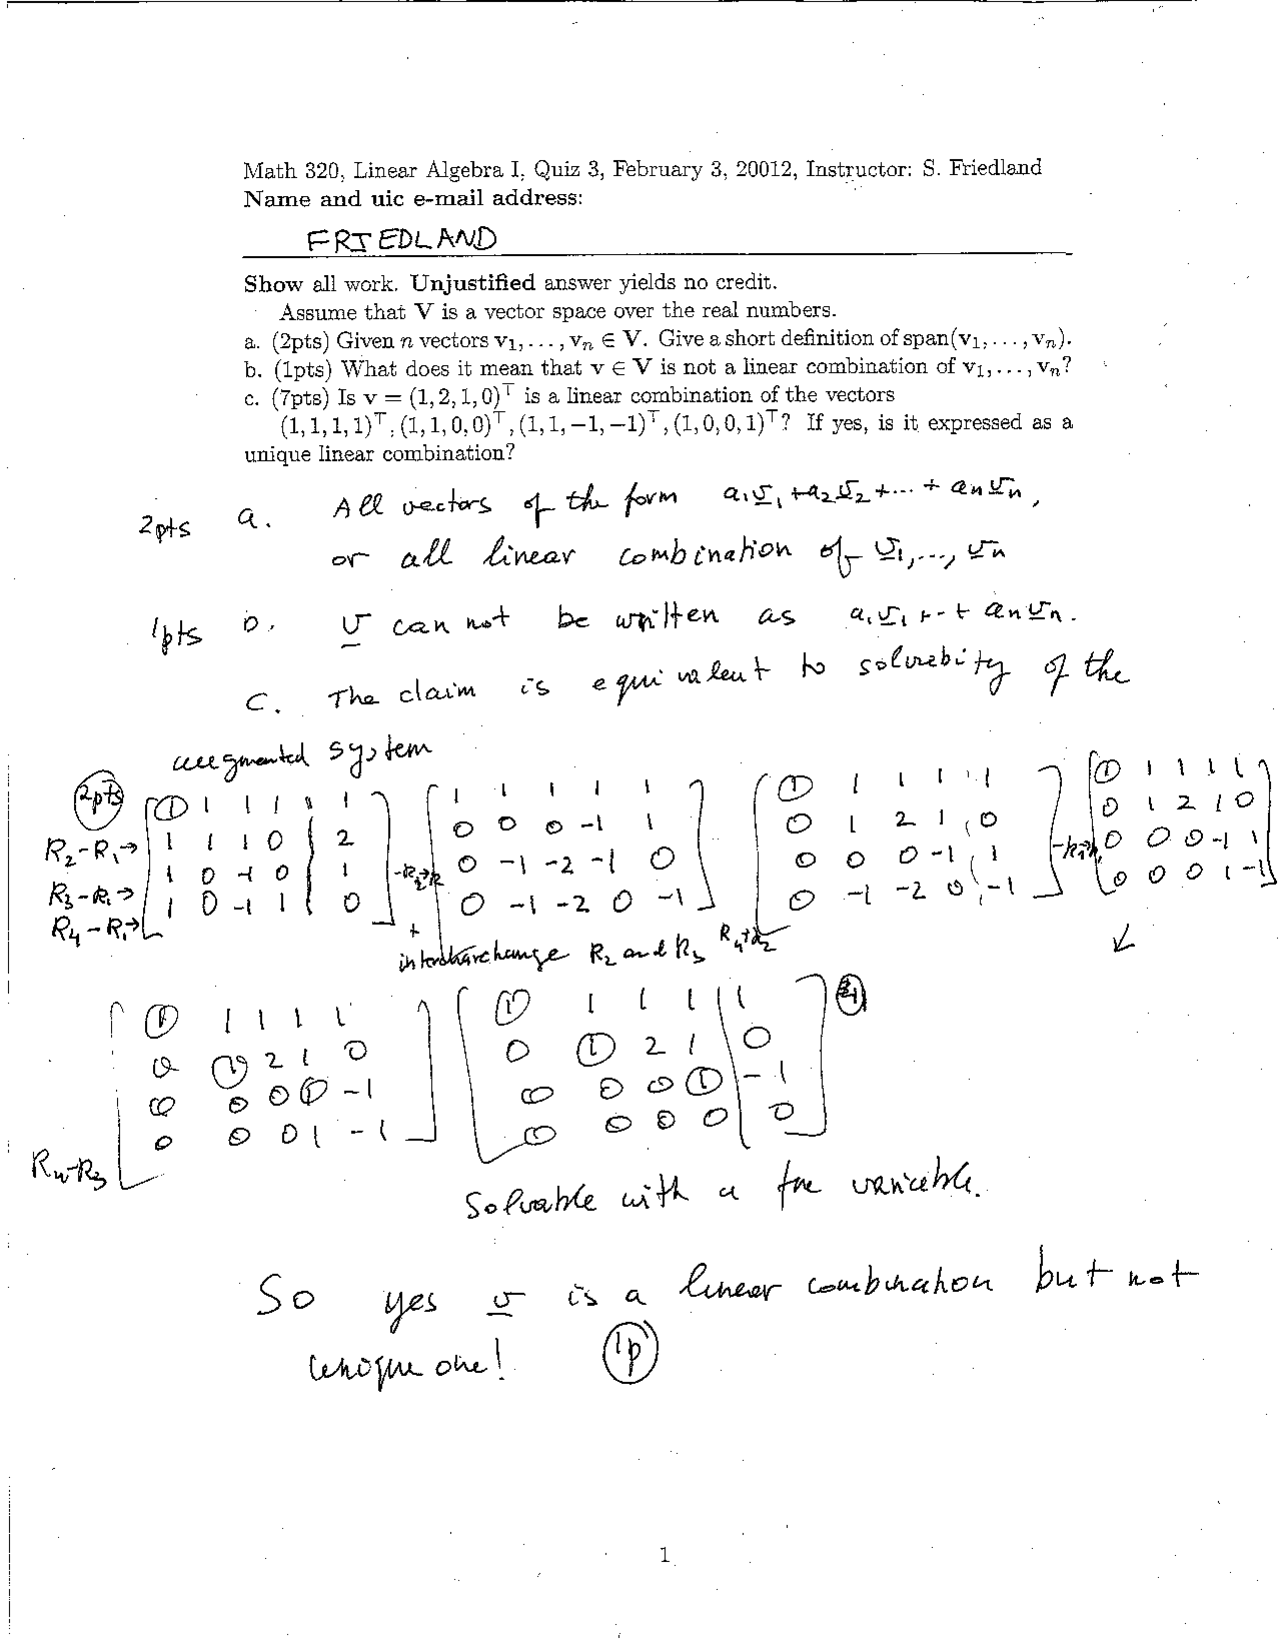 Math 320, Linear Algebra I, Quiz 3, February 3, 20012, Instructor: S. Friedland
Name and uic e-mail address:
FRIEDLAND
Show all work. Unjustified answer yields no credit.
Assume that V is a vector space over the real numbers.
a. (2pts) Given n vectors v₁, . . . , vₙ ∈ V. Give a short definition of span(v₁, . . . , vₙ).
b. (1pts) What does it mean that v ∈ V is not a linear combination of v₁, . . . , vₙ?
c. (7pts) Is v = (1, 2, 1, 0)ᵀ is a linear combination of the vectors
(1, 1, 1, 1)ᵀ, (1, 1, 0, 0)ᵀ, (1, 1, −1, −1)ᵀ, (1, 0, 0, 1)ᵀ? If yes, is it expressed as a
unique linear combination?
2pts a. All vectors of the form a₁v₁ + a₂v₂ + ... + aₙvₙ,
or all linear combination of v₁, ..., vₙ
1pts b. v can not be written as a₁v₁ + ·· + aₙvₙ.
c. The claim is equivalent to solvebity of the
augmented system
2pts
1 1 1 1 | 1
R₂-R₁→ 1 1 1 0 | 2
1 0 -1 0 | 1
R₃-R₁→
1 0 -1 1 | 0
R₄-R₁→
1 1 1 1 1
0 0 0 -1 1
0 -1 -2 -1 0
0 -1 -2 0 -1
+
interchange R₂ and R₃
1 1 1 1 1
0 1 2 1 0
0 0 0 -1 1
0 -1 -2 0 -1
R₄+R₂
1 1 1 1 1
0 1 2 1 0
0 0 0 -1 1
0 0 0 1 -1
↙
1 1 1 1 1
0 1 2 1 0
0 0 0 1 -1
0 0 0 1 -1
R₄-R₃
1 1 1 1 | 1
0 1 2 1 | 0
0 0 0 1 | -1
0 0 0 0 | 0
Solvable with a free variable.
So yes v is a linear combination but not
unique one! 1p
1